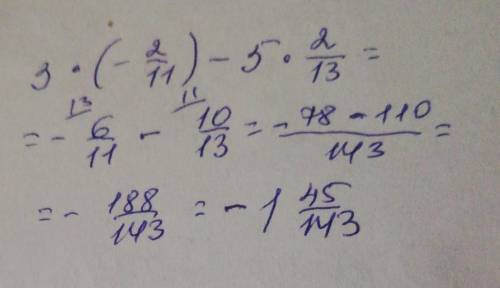 3 · (- 2/11) - 5 · 2/13 =
= - 6/11 (13 - 10/13 (11 = -78 - 110/143 =
= - 188/143 = - 1 45/143